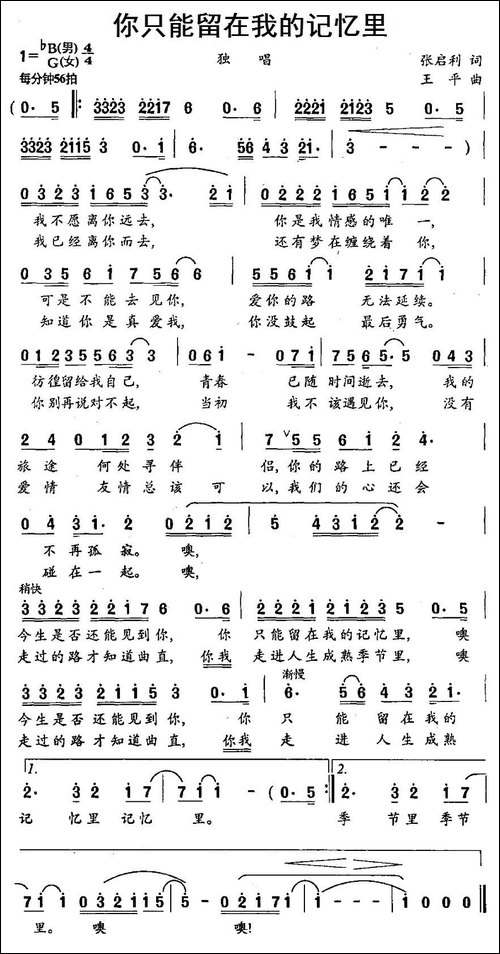 你只能留在我的记忆里
1=♭B(男) 4/4
G(女)
独 唱
张启利 词
每分钟56拍
王 平 曲
(0· 5 ‖: 3323 2217 6 0· 6 | 2221 2123 5 0· 5 |
3323 2115 3 0· 1 | 6· 56 4 3 21· | 3 - - - )|
0 3 2 3 1 6 5 3 3· 2 1 | 0 2 2 2 1 6 5 1 1 2 2 |
我不愿离你远去, 你是我情感的唯一,
我已经离你而去, 还有梦在缠绕着你,
0 3 5 6 1 7 5 6 6 | 5 5 6 1 2 1 7 1 1 |
可是不能去见你, 爱你的路 无法延续。
知道你是真爱我, 你没鼓起 最后勇气。
0 1 2 3 5 5 6 3 3 | 0 6 1 - 0 7 1 | 7 5 6 5· 5· 0 4 3 |
彷徨留给我自己, 青春 已随时间逝去, 我的
你别再说对不起, 当初 我不该遇见你, 没有
2 4 0 1 2 3 2 1 | 7 ∨5 5 6 1 2 4· |
旅途 何处寻伴 侣,你的路上已经
爱情 友情总该可 以,我们的心还会
0 4 3 1· 2 0 2 1 2 | 5 4 3 1 2 2 - |
不再孤寂。 噢,
碰在一起。 噢,
稍快
3 3 2 3 2 2 1 7 6 0· 6 | 2 2 2 1 2 1 2 3 5 0· 5 |
今生是否还能见到你, 你 只能留在我的记忆里, 噢
走过的路才知道曲直, 你我 走进人生成熟季节里, 噢
3 3 2 3 2 1 1 5 3 0· 1 | 渐慢 6· 5 6 4 3 2 1· |
今生是否还能见到你, 你 只 能留在我的
走过的路才知道曲直, 你我 走 进人生成熟
1. 2· 3 2 1 7 | 7 1 1 - (0· 5 :‖ 2. 2· 3 2 1 7 |
记 忆里记忆 里。 季 节里季节
7 1 1 0 3 2 1 1 5 | 5 - 0· 2 2 1 7 1 | 1 - - - | 1 0 0 0 ‖
里。 噢 噢!